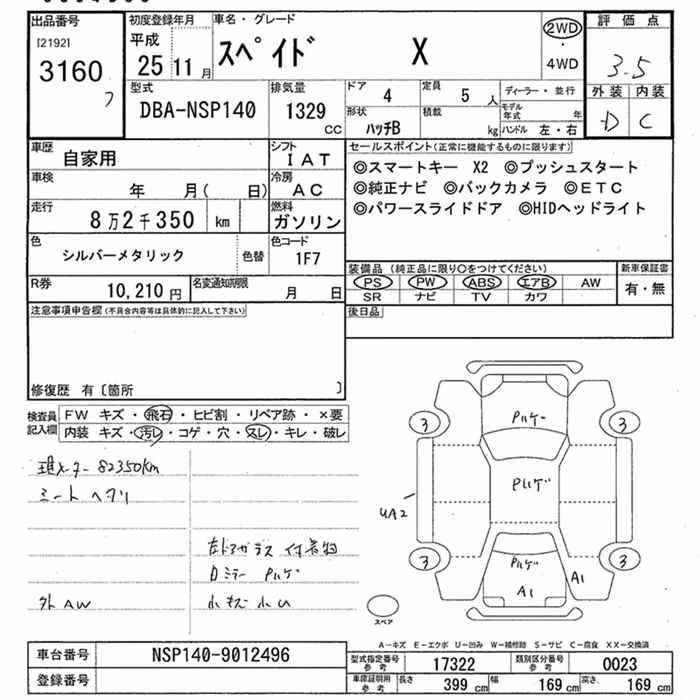 出品番号 初度登録年月 車名・グレード 評価点
[2192] 平成 スペイド X 2WD
・
3160 25 11月 4WD 3.5
7 型式 排気量 ドア 4 定員 5人 ディーラー・並行 外装 内装
DBA-NSP140 1329 CC 形状 ハッチB 積載 kg モデル年式 年 D C
ハンドル 左・右
車歴 自家用 シフト IAT セールスポイント(正常に機能するものに限ります)
車検 年 月( 日) 冷房 AC ◎スマートキー X2 ◎プッシュスタート
走行 8万2千350 km 燃料 ガソリン ◎純正ナビ ◎バックカメラ ◎ETC
◎パワースライドドア ◎HIDヘッドライト
色 シルバーメタリック 色替 色コード 1F7
装備品(純正品に限り○をつけてください) 新車保証書
R券 10,210円 名変通知期限 月 日 PS PW ABS エアB AW 有・無
SR ナビ TV カワ
注意事項申告欄(不具合内容等は具体的に記入して下さい) 後日品
修復歴 有〔箇所 〕
検査員記入欄 FW キズ・飛石・ヒビ割・リペア跡・×要
内装 キズ・汚レ・コゲ・穴・スレ・キレ・破レ
現メーター 82350km
シートヘタリ
左ドアガラス付着物
Dミラー Pルゲ
外AW 小キズ小U
Pルゲ
3 3
Pルゲ
UA2
3 3
Pルゲ
A1 A1
スペア
A-キズ E-エクボ U-凹み W-補修跡 S-サビ C-腐食 XX-交換済
車台番号 NSP140-9012496 型式指定番号 参考 17322 類別区分番号 参考 0023
登録番号 車庫証明用 参考 長さ 399cm 幅 169cm 高さ 169cm